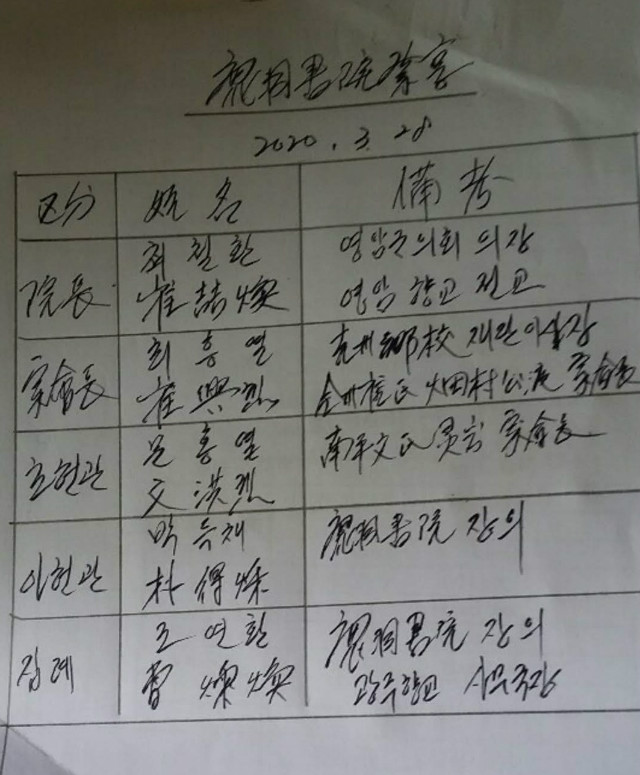 鹿洞書院祭官
2020. 3. 28
区分 姓名 備考
최철환 영암군의회 의장
院長 崔喆煥 영암향교 전교
최흥열 光州鄕校 재단이사장
宗會長 崔興烈 全州崔氏 烟村公派 宗會長
문홍열 南平文氏 宗會長
초헌관 文洪烈
박득재 鹿洞書院 장의
아헌관 朴得
조연환 鹿洞書院 장의
집례 曺 煥 광주향교 사무국장